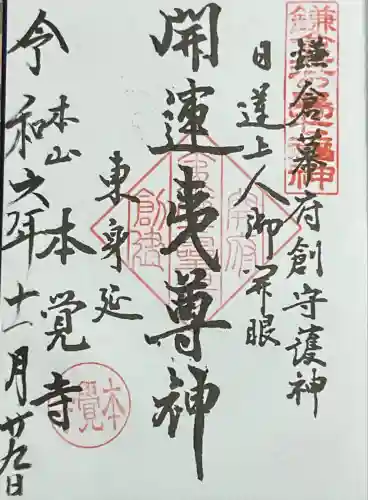 鎌倉幕府創守護神
日蓮上人御開眼
開運夷尊神
東身延
本山 本覺寺
令和六年十一月廿九日
本覺